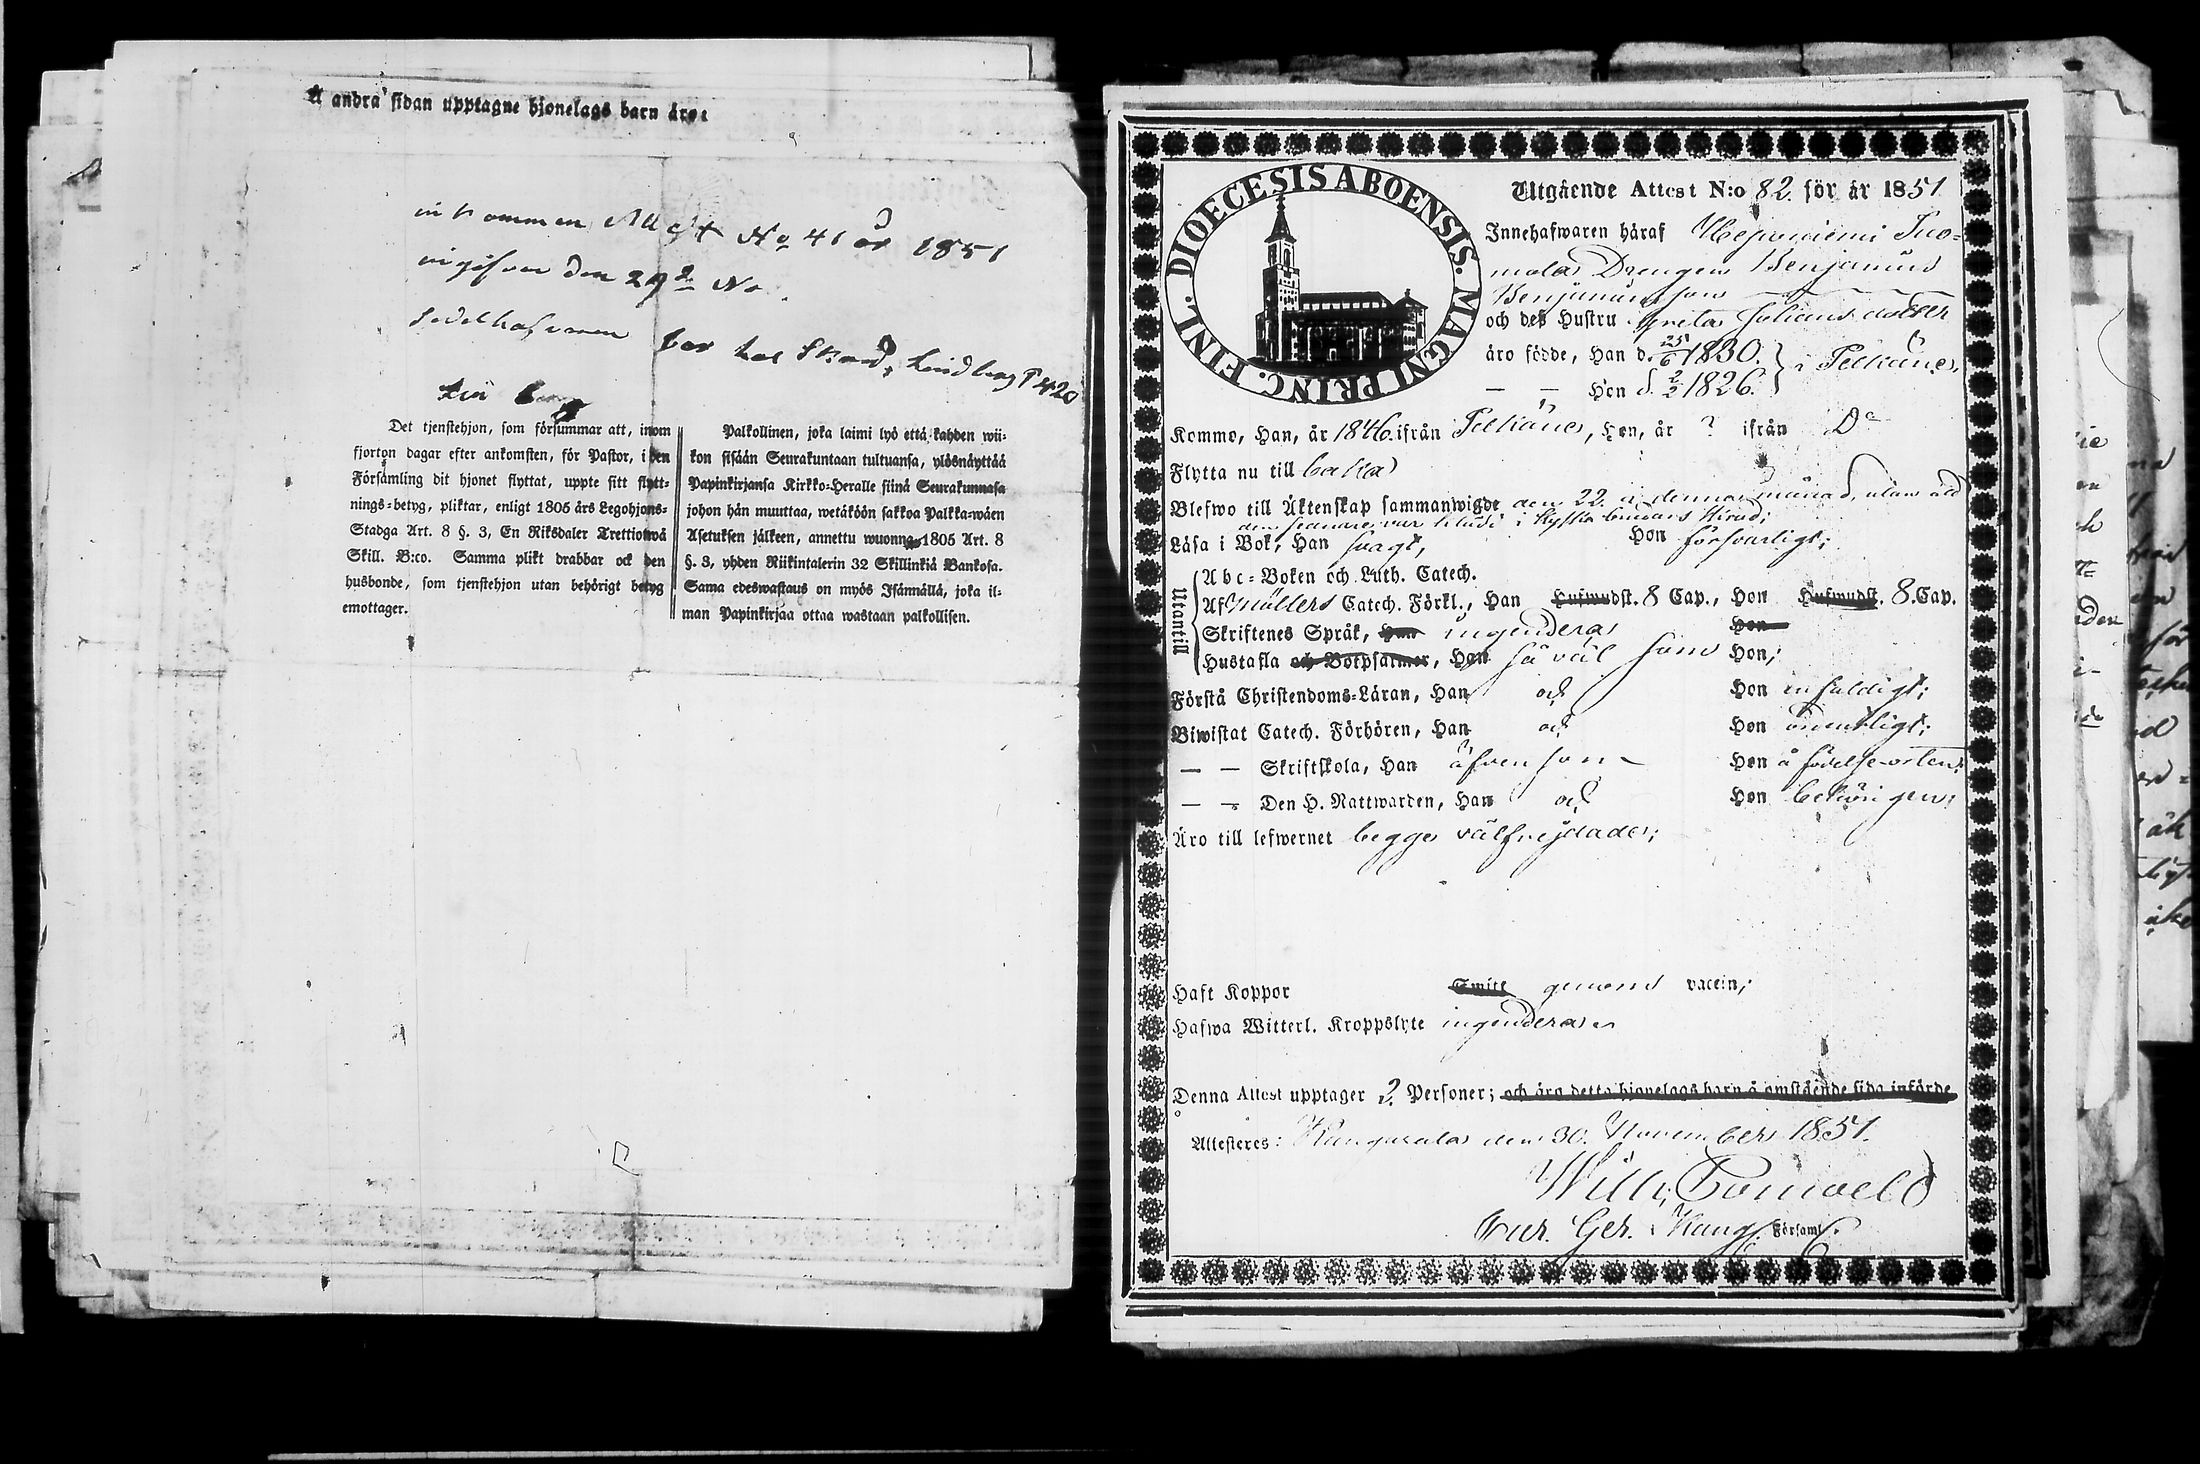 Å andra sidan upptagne hjonelags barn äro:
inkommen Att est No 41 år 1851
ingifven den 29 No
Sedelhafvaren har Lindberg P 420
Det tjenstehjon, som försummar att, inom
fjorton dagar efter ankomsten, för Pastor, i den
Församling dit hjonet flyttat, uppte sitt flytt-
nings-betyg, pliktar, enligt 1805 års Legohjons-
Stadga Art. 8 §. 3, En Riksdaler Trettiotwå
Skill. B:co. Samma plikt drabbar ock den
husbonde, som tjenstehjon utan behörigt betyg
emottager.
Palkollinen, joka laimi lyö että kahden wii-
kon sisään Seurakuntaan tultuansa, ylösnäyttää
Papinkirjansa Kirkko-Heralle siinä Seurakunnasa
johon hän muuttaa, wetäköön sakkoa Palkka-wäen
Asetuksen jälkeen, annettu wuonna 1805 Art. 8
§. 3, yhden Riikintalerin 32 Skillinkiä Bankosa.
Sama edeswastaus on myös Isännällä, joka il-
man Papinkirjaa ottaa wastaan palkollisen.
DIOECESIS ABOENSIS. MAGNI PRINC. FINL.
Utgående Attest N:o 82 för år 1851
Innehafwaren häraf Uepaniemi Tuo-
mola Drengen Benjamin
Benjaminsson
och deß Hustru Greta Juliana dotter
äro födde, Han d. 25/6 1830. } i Pelkäne,
— — Hon d. 2/2 1826.
Kommo, Han, år 1846. ifrån Pelkäne, Hon, år ? ifrån Do
Flytta nu till baka
Blefwo till Äktenskap sammanwigde den 22 i denna månad, utan att
den sednare var kludi i Kyskhe budets Strid;
Läsa i Bok, Han svagt, Hon försvarligt;
Utantill
Abc-Boken och Luth. Catech.
Af Möllers Catech. Förkl., Han Hufwudst. 8 Cap., Hon Hufwudst. 8. Cap.
Skriftenes Språk, Han ingendera Hon
Hustafla och Botpsalmer, Han så väl som Hon;
Förstå Christendoms-Läran, Han och Hon enfaldigt;
Biwistat Catech. Förhören, Han och Hon ordentligt;
— — Skriftskola, Han äfven som Hon å födelse-orten;
— — Den H. Nattwarden, Han och Hon behörigen;
Äro till lefwernet begge välfrejdade;
Haft Koppor genom vaccin;
Hafwa Witterl. Kroppslyte ingendera
Denna Attest upptager 2. Personer; och äro detta hjonelags barn å omstående sida införde
Attesteres: Kangasala den 30. November 1851.
Wilh.
Cur. Ger. Kang. Församl.